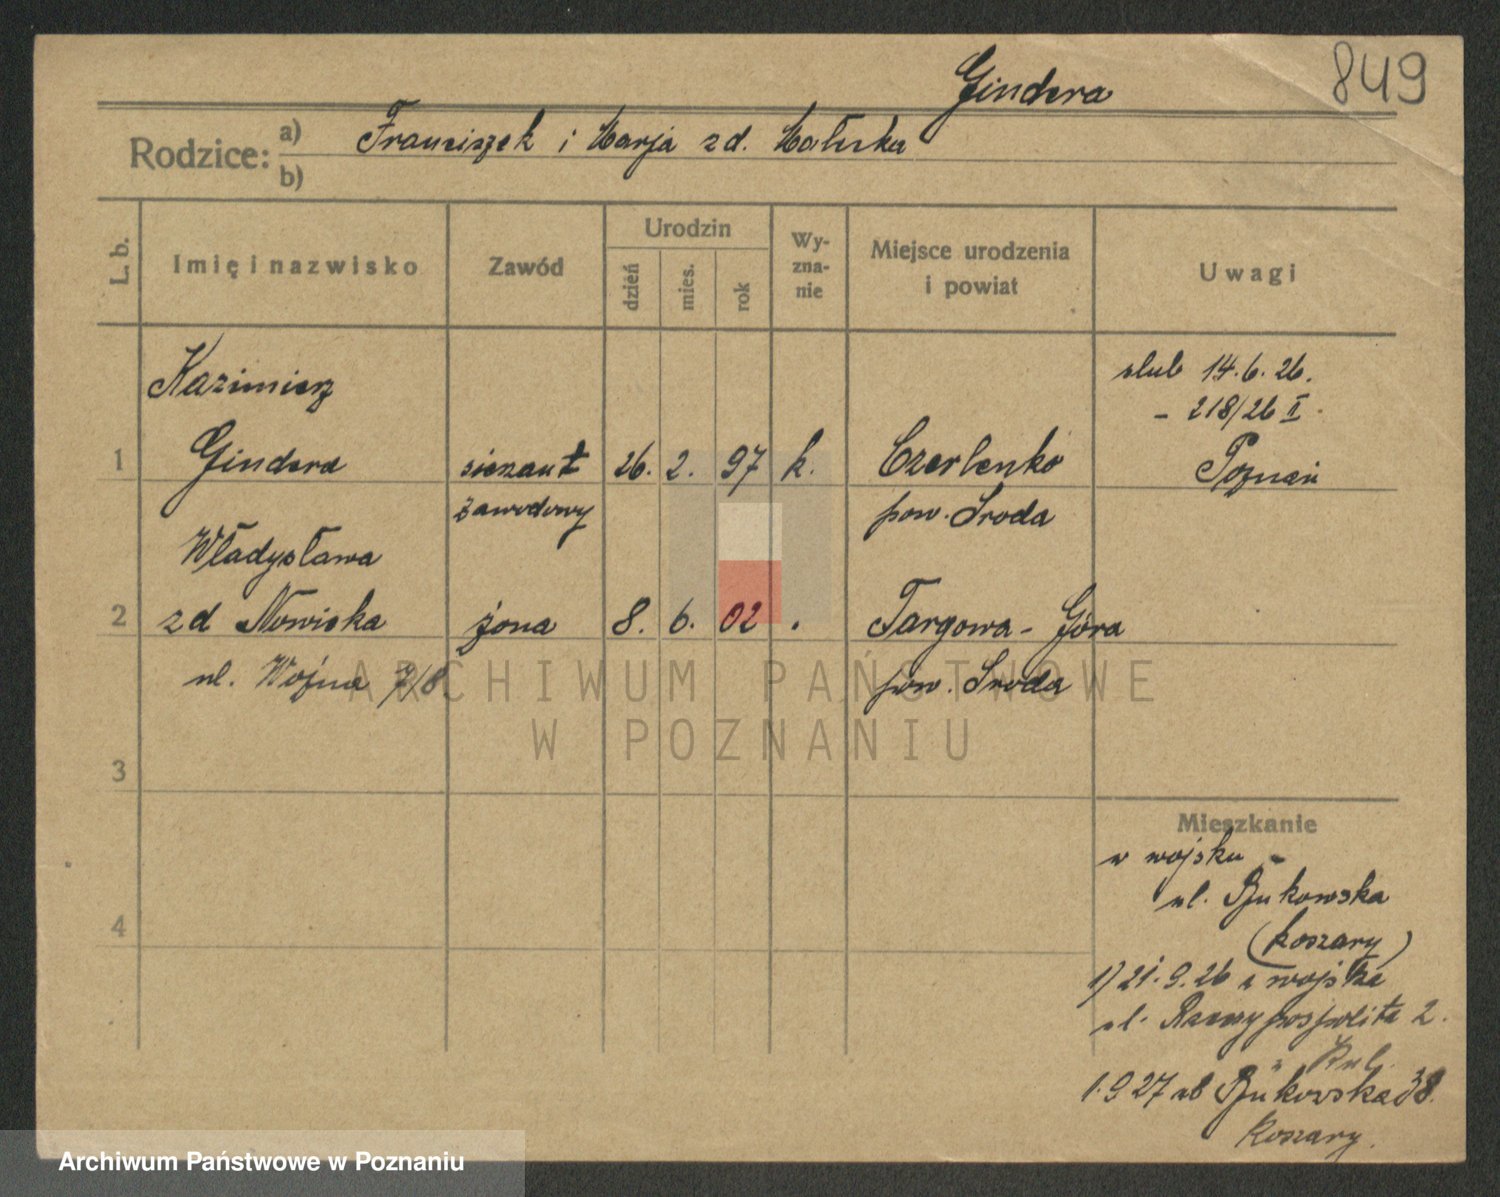 849
Gindera
Rodzice: a) Franciszek i Marja zd. Małuka
b)
L. b. Imię i nazwisko Zawód Urodzin dzień mies. rok Wy-zna-nie Miejsce urodzenia i powiat Uwagi
Kazimierz ślub 14.6.26.
– 218/26 II.
1 Gindera sierżant 26. 2. 97 k. Czerlenko Poznań
zawodowy pow. Środa
Władysława
2 zd Nowicka żona 8. 6. 02 . Targowa-Góra
ul. Wojna 7/8 pow. Środa
ARCHIWUM PAŃSTWOWE
W POZNANIU
3
Mieszkanie
w wojsku –
ul. Bukowska
4
(koszary)
1) 21.9.26 z wojska
ul. Rzeczypospolita 2.
1.9 27 ul Bukowska 38.
Koszary.
Archiwum Państwowe w Poznaniu